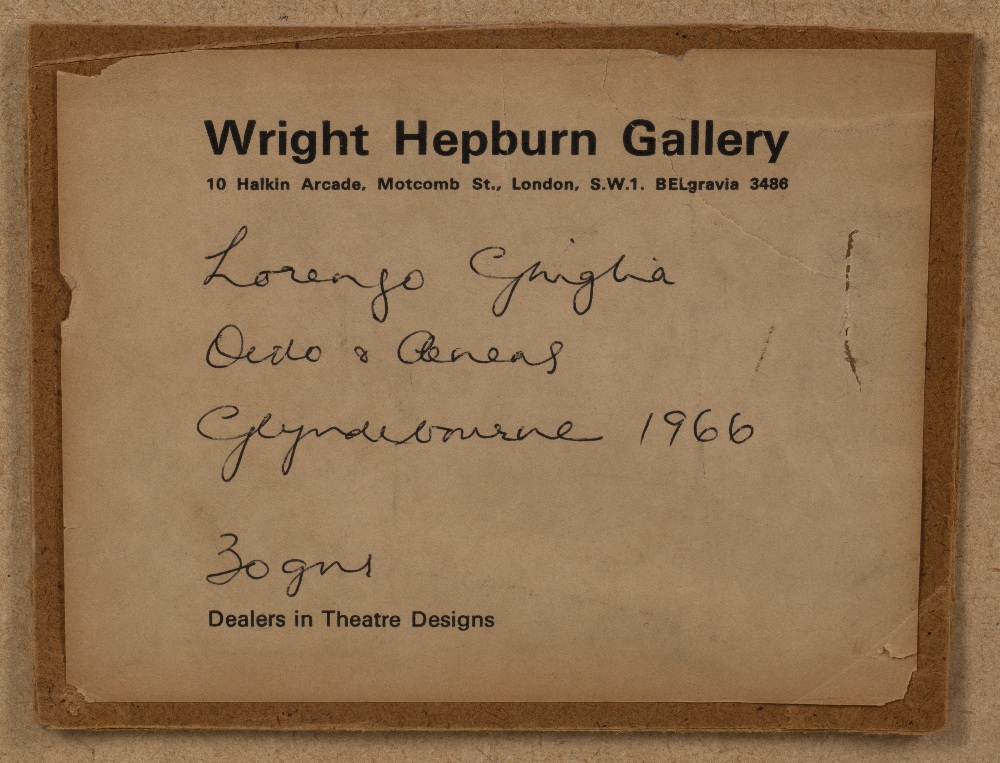 Wright Hepburn Gallery
10 Halkin Arcade, Motcomb St., London, S.W.1. BELgravia 3486
Lorenzo Ghiglia
Dido & Aeneas
Glyndebourne 1966
30 gns
Dealers in Theatre Designs